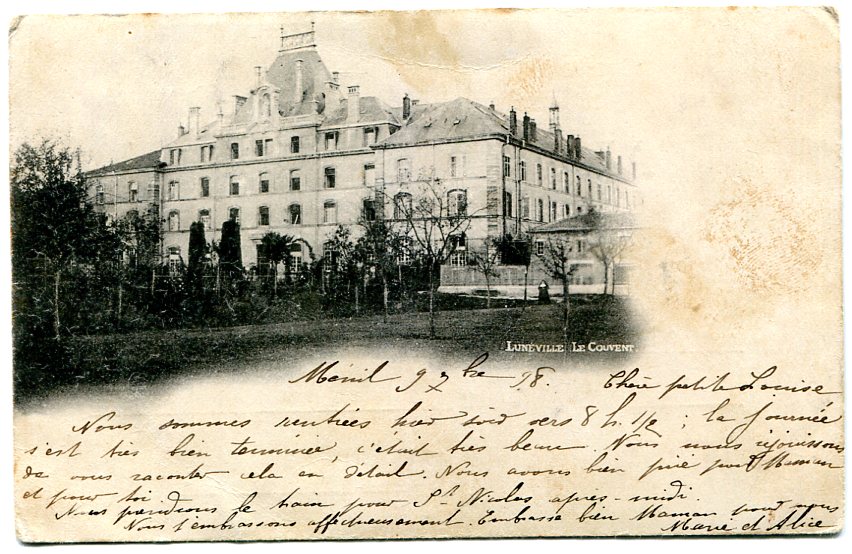 LUNÉVILLE LE COUVENT.
Ménil 9 7bre 98. Chère petite Louise
Nous sommes rentrées hier soir vers 8 h. 1/2 ; la journée
s'est très bien terminée, c'était très beau Nous nous réjouissons
de vous raconter cela en détail. Nous avons bien prié pour Maman
et pour toi
Nous prendrons le train pour St Nicolas après-midi.
Nous t'embrassons affectueusement. Embrasse bien Maman pour nous
Marie et Alice